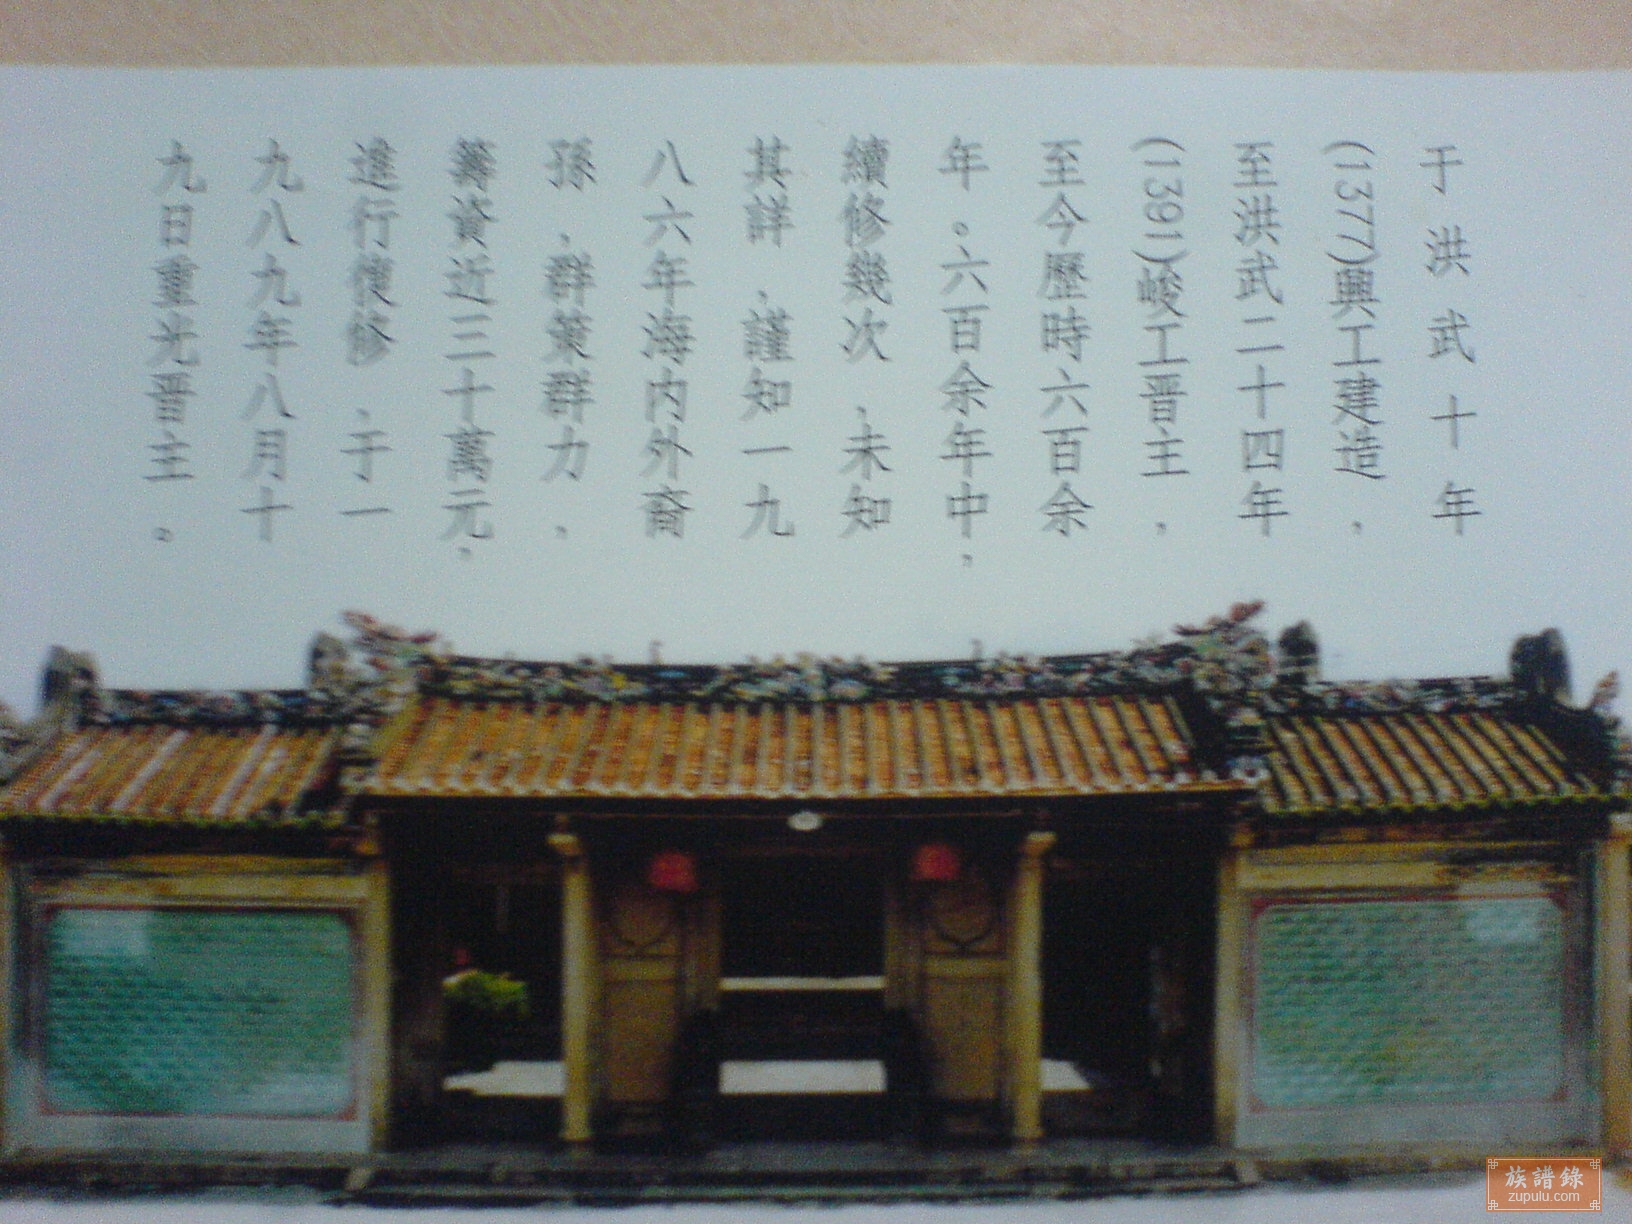 于洪武十年
(1377)興工建造，
至洪武二十四年
(1391)峻工晋主，
至今歷時六百余
年。六百余年中，
續修幾次，未知
其詳，謹知一九
八六年海内外裔
孫，群策群力，
籌資近三十萬元，
進行復修，于一
九八九年八月十
九日重光晋主。
族譜錄
zupulu.com